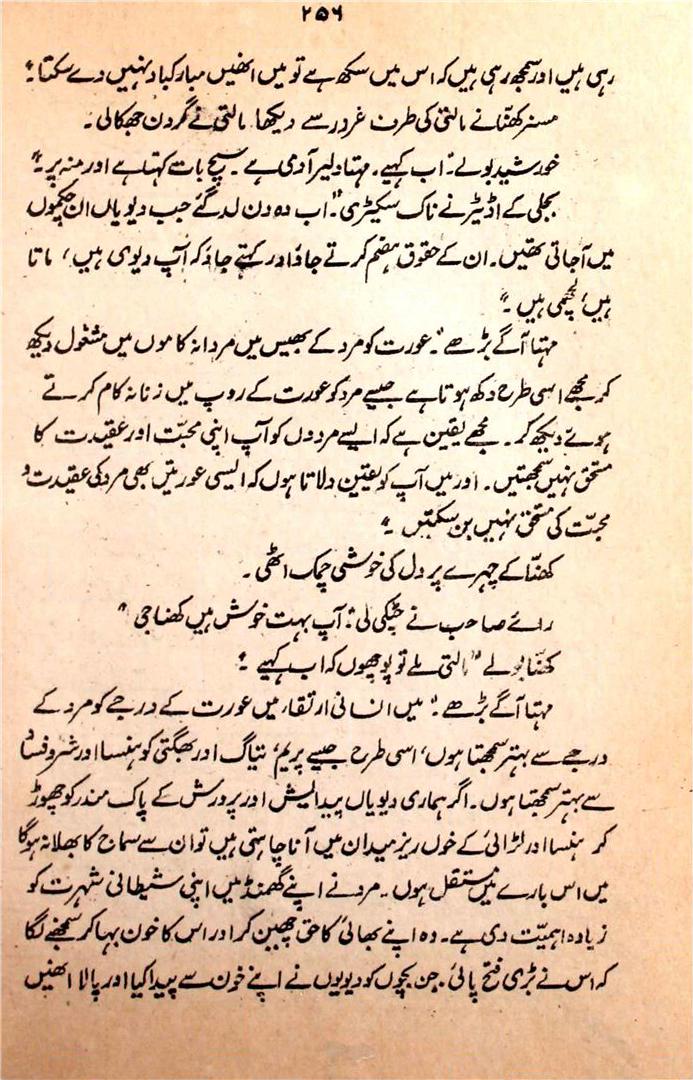 ۲۵۶
رہی ہیں اور سمجھ رہی ہیں کہ اس میں سکھ ہے تو میں انھیں مبارکباد نہیں دے سکتا۔"
مسز کھنّا نے مالتی کی طرف غرور سے دیکھا۔ مالتی نے گردن جھکالی۔
خورشید بولے "اب کہیے۔ مہتا دلیر آدمی ہے۔ سچ بات کہتا ہے اور منہ پر۔"
بجلی کے اڈیٹر نے ناک سکیڑی "اب وہ دن لد گئے جب دیویاں ان چکموں
میں آجاتی تھیں۔ ان کے حقوق ہضم کرتے جاؤ اور کہتے جاؤ کہ آپ دیوی ہیں، ماتا
ہیں، لچھمی ہیں۔"
مہتا آگے بڑھے "عورت کو مرد کے بھیس میں مردانہ کاموں میں مشغول دیکھ
کر مجھے اسی طرح دکھ ہوتا ہے جیسے مرد کو عورت کے روپ میں زنانہ کام کرتے
ہوئے دیکھ کر۔ مجھے یقین ہے کہ ایسے مردوں کو آپ اپنی محبّت اور عقیدت کا
مستحق نہیں سمجھتیں۔ اور میں آپ کو یقین دلاتا ہوں کہ ایسی عورتیں بھی مرد کی عقیدت و
محبّت کی مستحق نہیں بن سکتیں۔"
کھنّا کے چہرے پر دل کی خوشی چمک اٹھی۔
رائے صاحب نے چٹکی لی "آپ بہت خوش ہیں کھنا جی"
کھنّا بولے "مالتی ملے تو پوچھوں کہ اب کہیے"
مہتا آگے بڑھے "میں انسانی ارتقاء میں عورت کے درجے کو مرد کے
درجے سے بہتر سمجھتا ہوں، اسی طرح جیسے پریم، تیاگ اور بھگتی کو ہنسا اور شر و فساد
سے بہتر سمجھتا ہوں۔ اگر ہماری دیویاں پیدائیش اور پرورش کے پاک مندر کو چھوڑ
کر ہنسا اور لڑائی کے خوں ریز میدان میں آنا چاہتی ہیں تو ان سے سماج کا بھلا نہ ہوگا
میں اس بارے میں مستقل ہوں۔ مرد نے اپنے گھمنڈ میں اپنی شیطانی شہرت کو
زیادہ اہمیّت دی ہے۔ وہ اپنے بھائی کا حق چھین کر اور اس کا خون بہا کر سمجھنے لگا
کہ اس نے بڑی فتح پائی۔ جن بچوں کو دیویوں نے اپنے خون سے پیدا کیا اور پالا انھیں